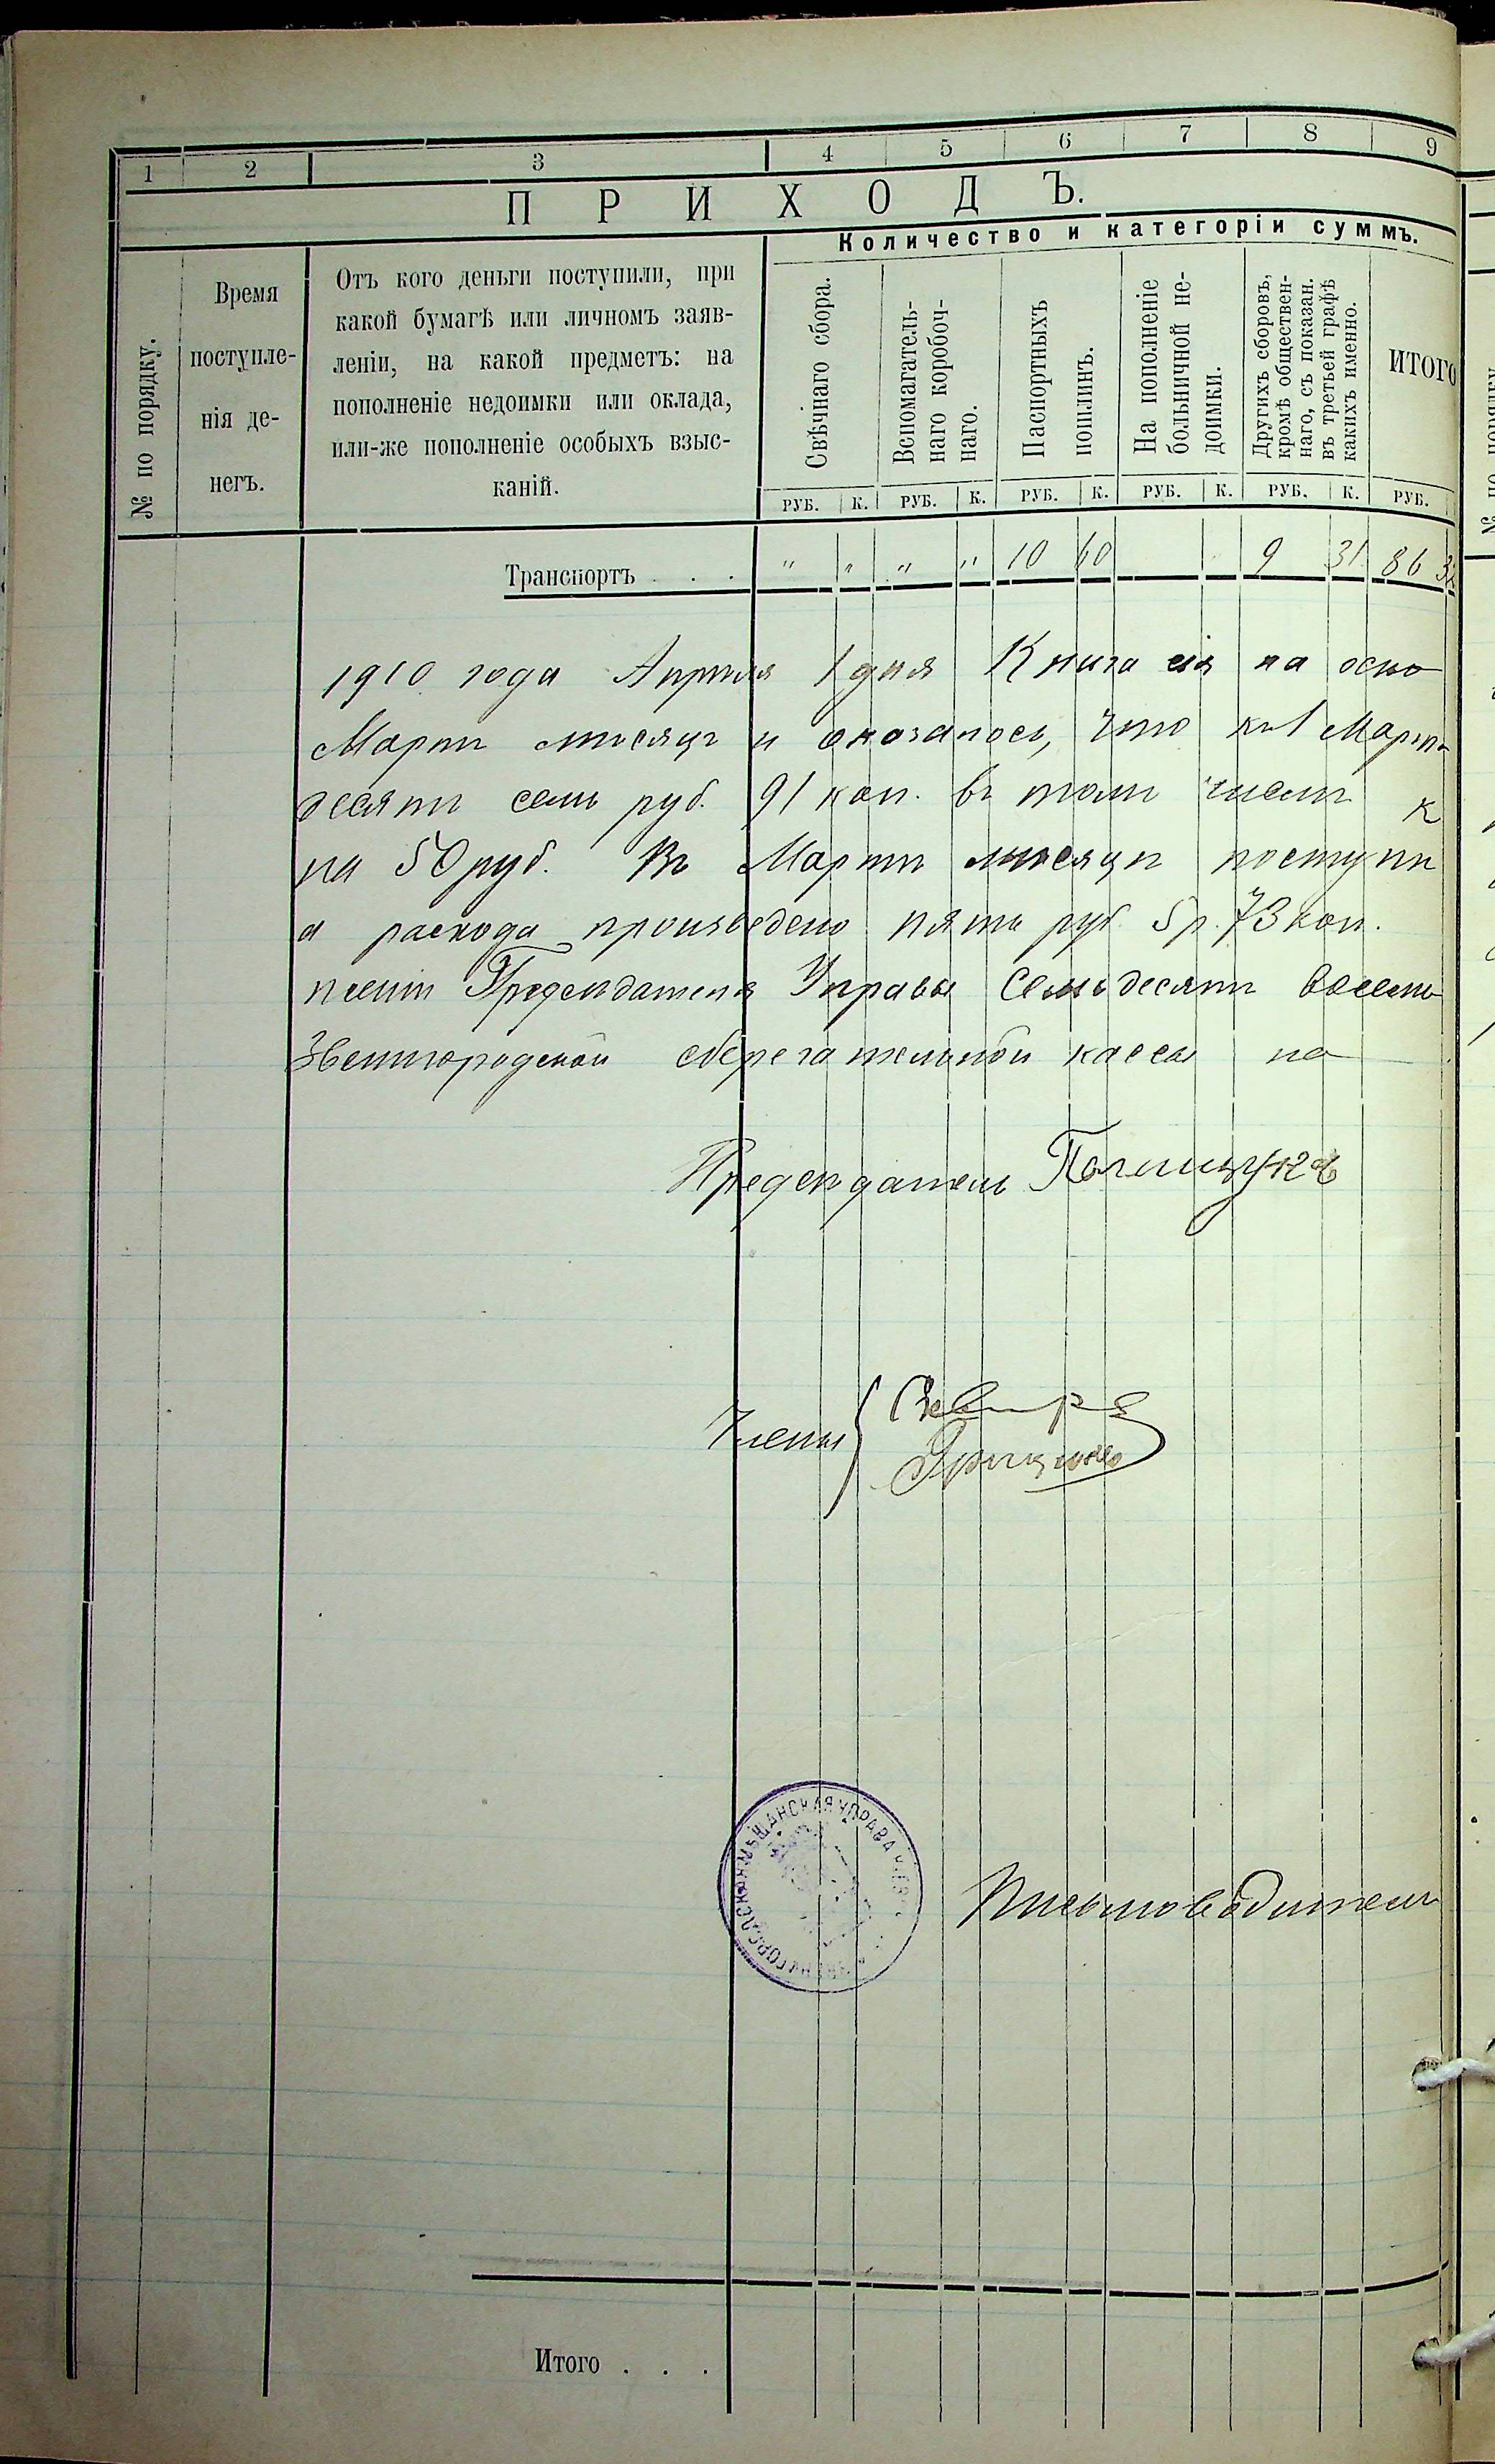 1 2 3 4 5 6 7 8 9
ПРИХОДЪ.
Количество и категоріи суммъ.
№ по порядку.
Время
поступле-
нія де-
негъ.
Отъ кого деньги поступили, при
какой бумагѣ или личномъ заяв-
леніи, на какой предметъ: на
пополненіе недоимки или оклада,
или-же пополненіе особыхъ взыс-
каній.
Свѣчнаго сбора.
Вспомагатель-
наго коробоч-
наго.
Паспортныхъ
пошлинъ.
На пополненіе
больничной не-
доимки.
Другихъ сборовъ,
кромѣ обществен-
наго, съ показан.
въ третьей графѣ
какихъ именно.
ИТОГО
РУБ. К. РУБ. К. РУБ. К. РУБ. К. РУБ. К. РУБ.
Транспортъ . . . " " " " 10 60 9 31 86
1910 года Апрѣля 1 дня Книга сія на осно
Мартъ мѣсяцъ и оказалось, что къ 1 Марта
десятъ семь руб. 91 коп. въ томъ числѣ к
на 50 руб. Въ Мартѣ мѣсяцѣ поступи
а расхода произведено пять руб. 5 р. 73 коп.
Предсѣдателя Управы Семьдесятъ восемь
Звенигородской сберегательной кассы на
Предсѣдатель
Члены
МѢЩАНСКАЯ УПРАВА
Письмоводитель
Итого . . .